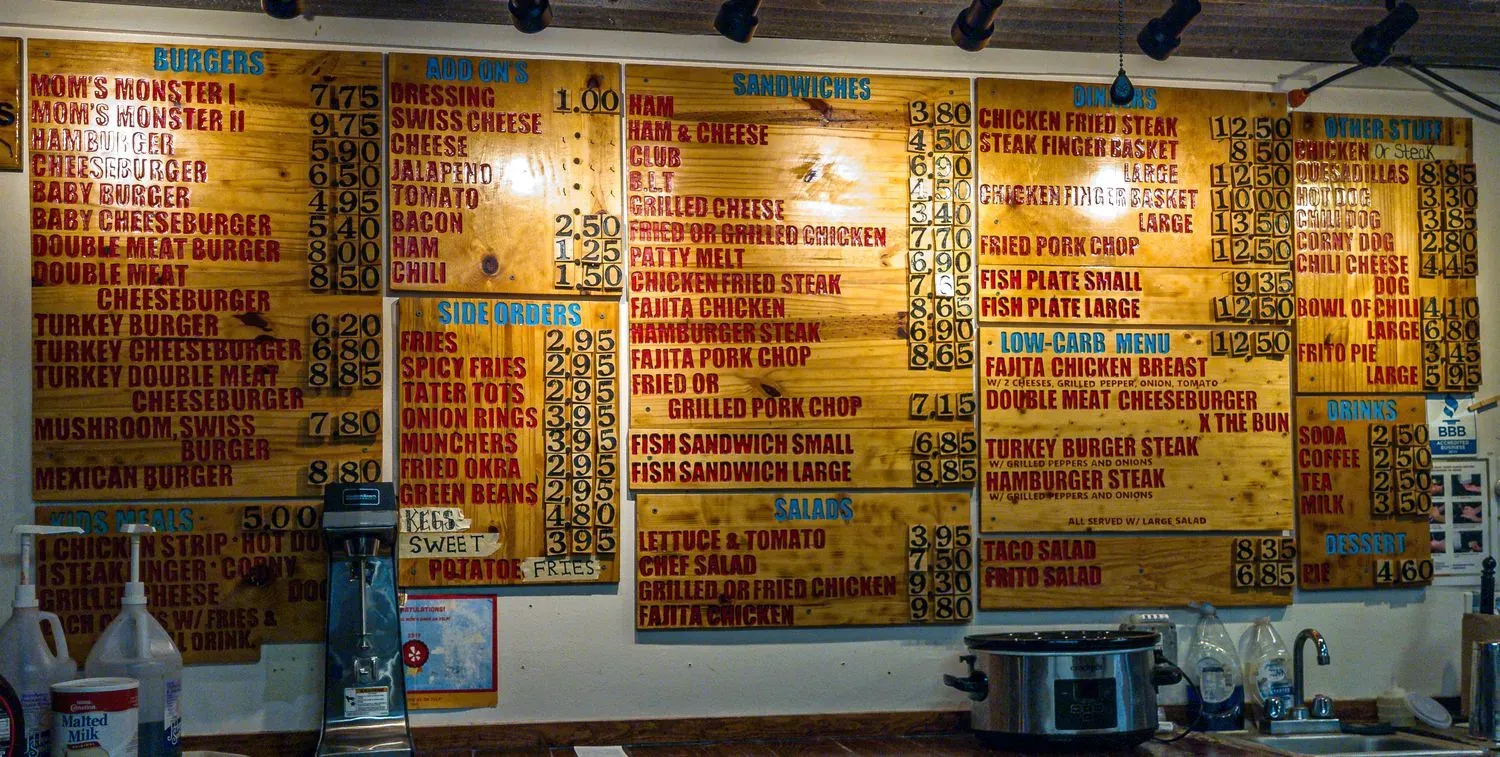 BURGERS
MOM'S MONSTER I 7.75
MOM'S MONSTER II 9.75
HAMBURGER 5.90
CHEESEBURGER 6.50
BABY BURGER 4.95
BABY CHEESEBURGER 5.40
DOUBLE MEAT BURGER 8.00
DOUBLE MEAT 8.50
CHEESEBURGER
TURKEY BURGER 6.20
TURKEY CHEESEBURGER 6.80
TURKEY DOUBLE MEAT 8.85
CHEESEBURGER
MUSHROOM, SWISS 7.80
BURGER
MEXICAN BURGER 8.80
KIDS MEALS 5.00
1 CHICKEN STRIP · HOT DO
1 STEAK INGER · CORNY
GRILLED CHEESE DO
W/ FRIES &
DRINK.
ADD ON'S
DRESSING 1.00
SWISS CHEESE
CHEESE
JALAPENO
TOMATO
BACON 2.50
HAM 1.25
CHILI 1.50
SIDE ORDERS
FRIES 2.95
SPICY FRIES 2.95
TATER TOTS 2.95
ONION RINGS 3.95
MUNCHERS 3.95
FRIED OKRA 2.95
GREEN BEANS 2.95
KEGS 4.80
SWEET 3.95
POTATOE FRIES
SANDWICHES
HAM 3.80
HAM & CHEESE 4.50
CLUB 6.90
B.L.T 4.50
GRILLED CHEESE 3.40
FRIED OR GRILLED CHICKEN 7.70
PATTY MELT 6.90
CHICKEN FRIED STEAK 7.65
FAJITA CHICKEN 8.65
HAMBURGER STEAK 6.90
FAJITA PORK CHOP 8.65
FRIED OR
GRILLED PORK CHOP 7.15
FISH SANDWICH SMALL 6.85
FISH SANDWICH LARGE 8.85
SALADS
LETTUCE & TOMATO 3.95
CHEF SALAD 7.50
GRILLED OR FRIED CHICKEN 9.30
FAJITA CHICKEN 9.80
CHICKEN FRIED STEAK 12.50
STEAK FINGER BASKET 8.50
LARGE 12.50
CHICKEN FINGER BASKET 10.00
LARGE 13.50
FRIED PORK CHOP 12.50
FISH PLATE SMALL 9.35
FISH PLATE LARGE 12.50
LOW-CARB MENU 12.50
FAJITA CHICKEN BREAST
W/ 2 CHEESES, GRILLED PEPPER, ONION, TOMATO
DOUBLE MEAT CHEESEBURGER
X THE BUN
TURKEY BURGER STEAK
W/ GRILLED PEPPERS AND ONIONS
HAMBURGER STEAK
W/ GRILLED PEPPERS AND ONIONS
ALL SERVED W/ LARGE SALAD
TACO SALAD 8.35
FRITO SALAD 6.85
OTHER STUFF
CHICKEN Or Steak
QUESADILLAS 8.85
HOT DOG 3.30
CHILI DOG 3.85
CORNY DOG 2.80
CHILI CHEESE 4.45
DOG
BOWL OF CHILI 4.10
LARGE 6.80
FRITO PIE 3.45
LARGE 5.95
DRINKS
SODA 2.50
COFFEE 2.50
TEA 2.50
MILK 3.50
DESSERT
PIE 4.60
BBB
ACCREDITED
BUSINESS
Malted
Milk